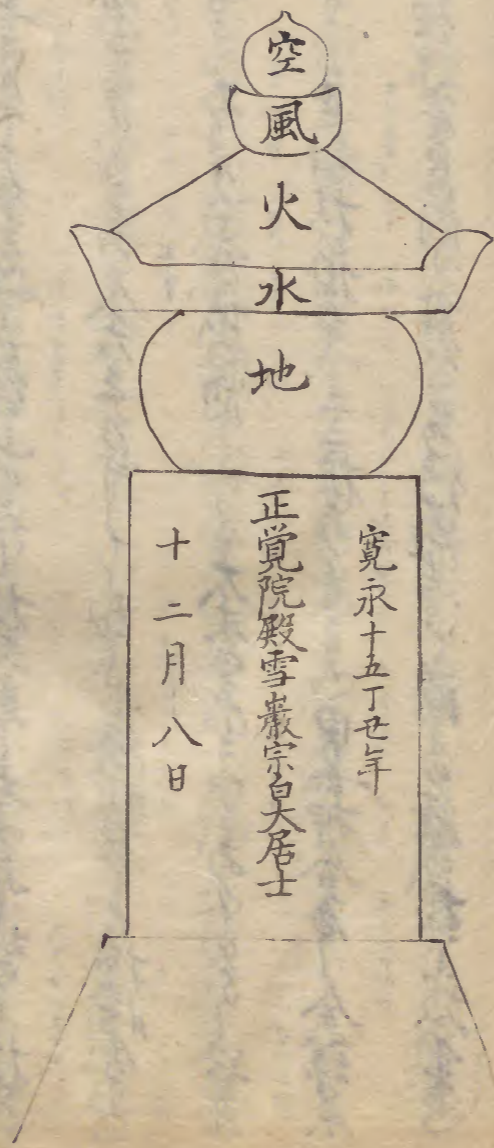 空
風
火
水
地
寛永十五丁丑年
正覚院殿雪巌宗白大居士
十二月八日